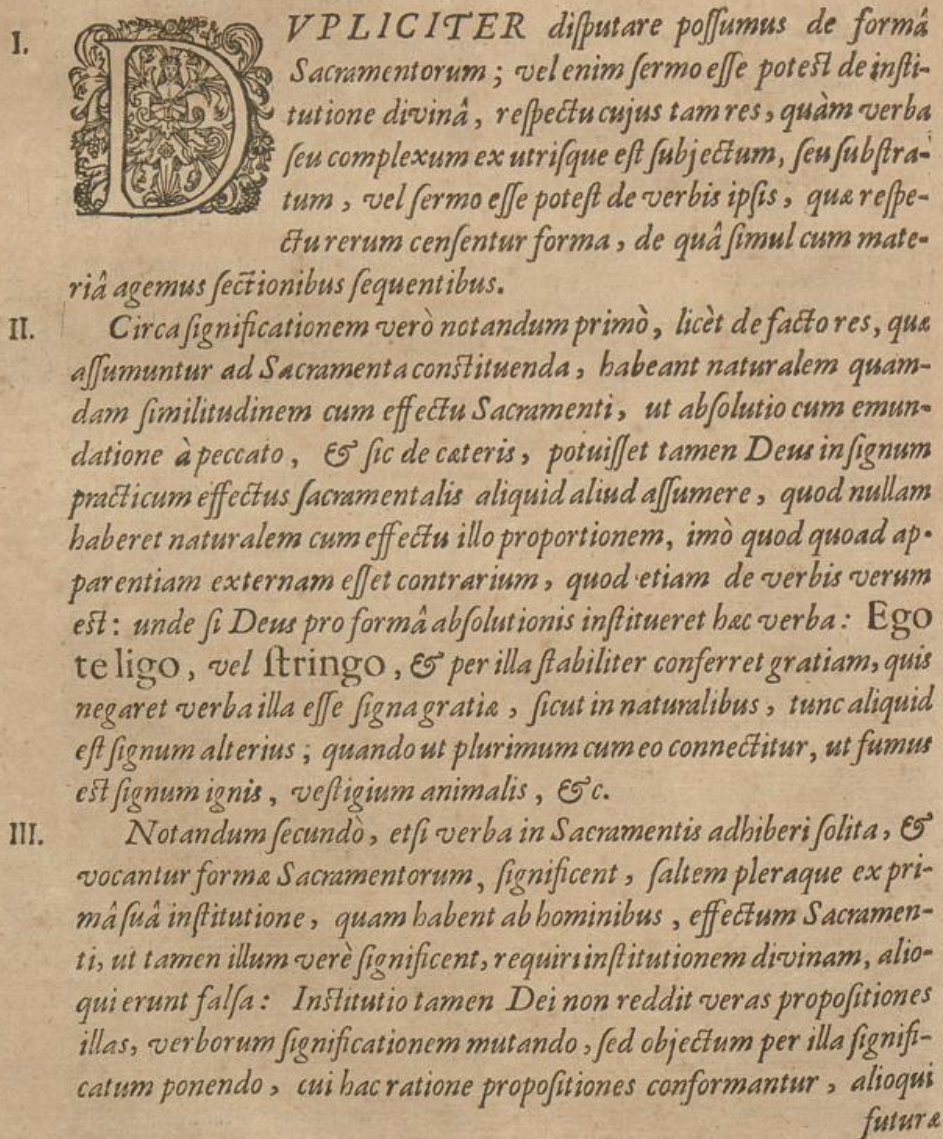 I. DVPLICITER diſputare poſſumus de formâ
Sacramentorum; vel enim ſermo eſſe poteſt de inſti-
tutione divinâ, reſpectu cujus tam res, quàm verba
ſeu complexum ex utriſque eſt ſubjectum, ſeu ſubſtra-
tum, vel ſermo eſſe poteſt de verbis ipſis, quæ reſpe-
ctu rerum cenſentur forma, de quâ ſimul cum mate-
riâ agemus ſectionibus ſequentibus.
II. Circa ſignificationem verò notandum primò, licèt de facto res, quæ
aſſumuntur ad Sacramenta conſtituenda, habeant naturalem quam-
dam ſimilitudinem cum effectu Sacramenti, ut abſolutio cum emun-
datione à peccato, & ſic de cæteris, potuiſſet tamen Deus in ſignum
practicum effectus ſacramentalis aliquid aliud aſſumere, quod nullam
haberet naturalem cum effectu illo proportionem, imò quod quoad ap-
parentiam externam eſſet contrarium, quod etiam de verbis verum
eſt: unde ſi Deus pro formâ abſolutionis inſtitueret hæc verba: Ego
te ligo, vel ſtringo, & per illa ſtabiliter conferret gratiam, quis
negaret verba illa eſſe ſigna gratiæ, ſicut in naturalibus, tunc aliquid
eſt ſignum alterius; quando ut plurimum cum eo connectitur, ut fumus
eſt ſignum ignis, veſtigium animalis, &c.
III. Notandum ſecundò, etſi verba in Sacramentis adhiberi ſolita, &
vocantur formæ Sacramentorum, ſignificent, ſaltem pleraque ex pri-
mâ ſuâ inſtitutione, quam habent ab hominibus, effectum Sacramen-
ti, ut tamen illum verè ſignificent, requiri inſtitutionem divinam, alio-
qui erunt falſa: Inſtitutio tamen Dei non reddit veras propoſitiones
illas, verborum ſignificationem mutando, ſed objectum per illa ſignifi-
catum ponendo, cui hac ratione propoſitiones conformantur, alioqui
futuræ